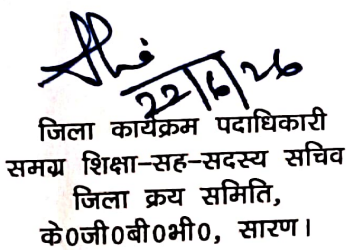 22/6/26
जिला कार्यक्रम पदाधिकारी
समग्र शिक्षा-सह-सदस्य सचिव
जिला क्रय समिति,
के0जी0बी0भी0, सारण।